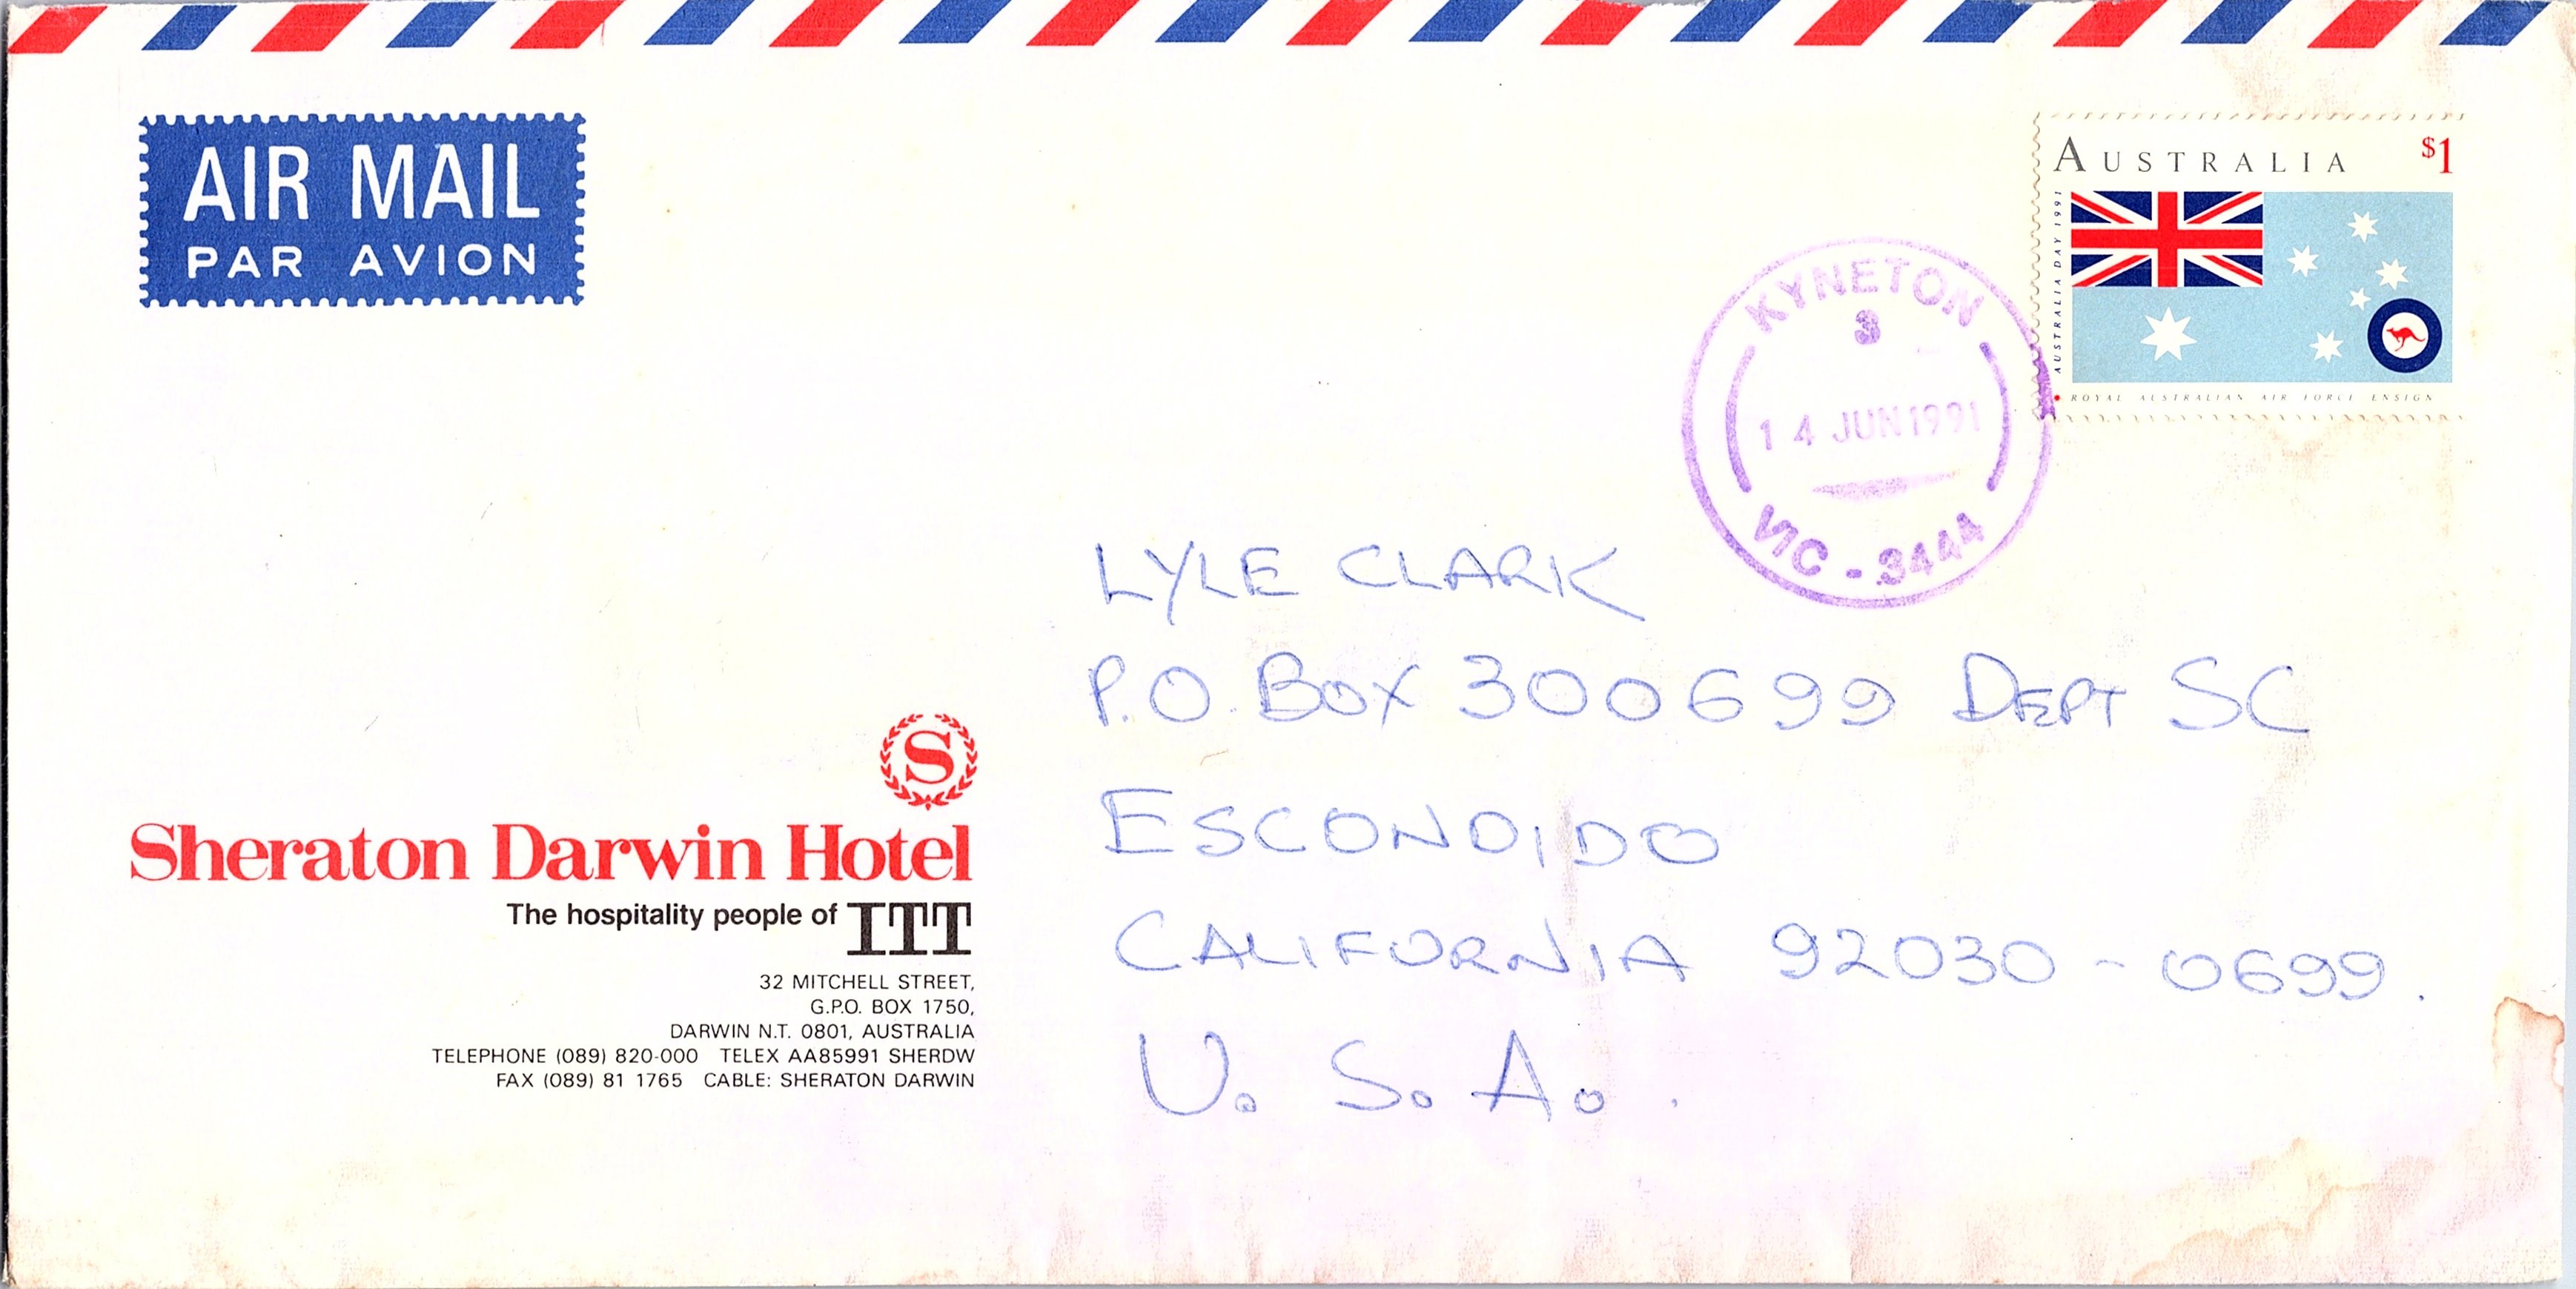 AIR MAIL
PAR AVION
AUSTRALIA $1
AUSTRALIA DAY 1991
ROYAL AUSTRALIAN AIR FORCE ENSIGN
KYNETON
3
14 JUN 1991
VIC - 3444
LYLE CLARK
P.O. BOX 300699 DEPT SC
ESCONDIDO
CALIFORNIA 92030 - 0699.
U. S. A.
S
Sheraton Darwin Hotel
The hospitality people of ITT
32 MITCHELL STREET,
G.P.O. BOX 1750,
DARWIN N.T. 0801, AUSTRALIA
TELEPHONE (089) 820-000 TELEX AA85991 SHERDW
FAX (089) 81 1765 CABLE: SHERATON DARWIN